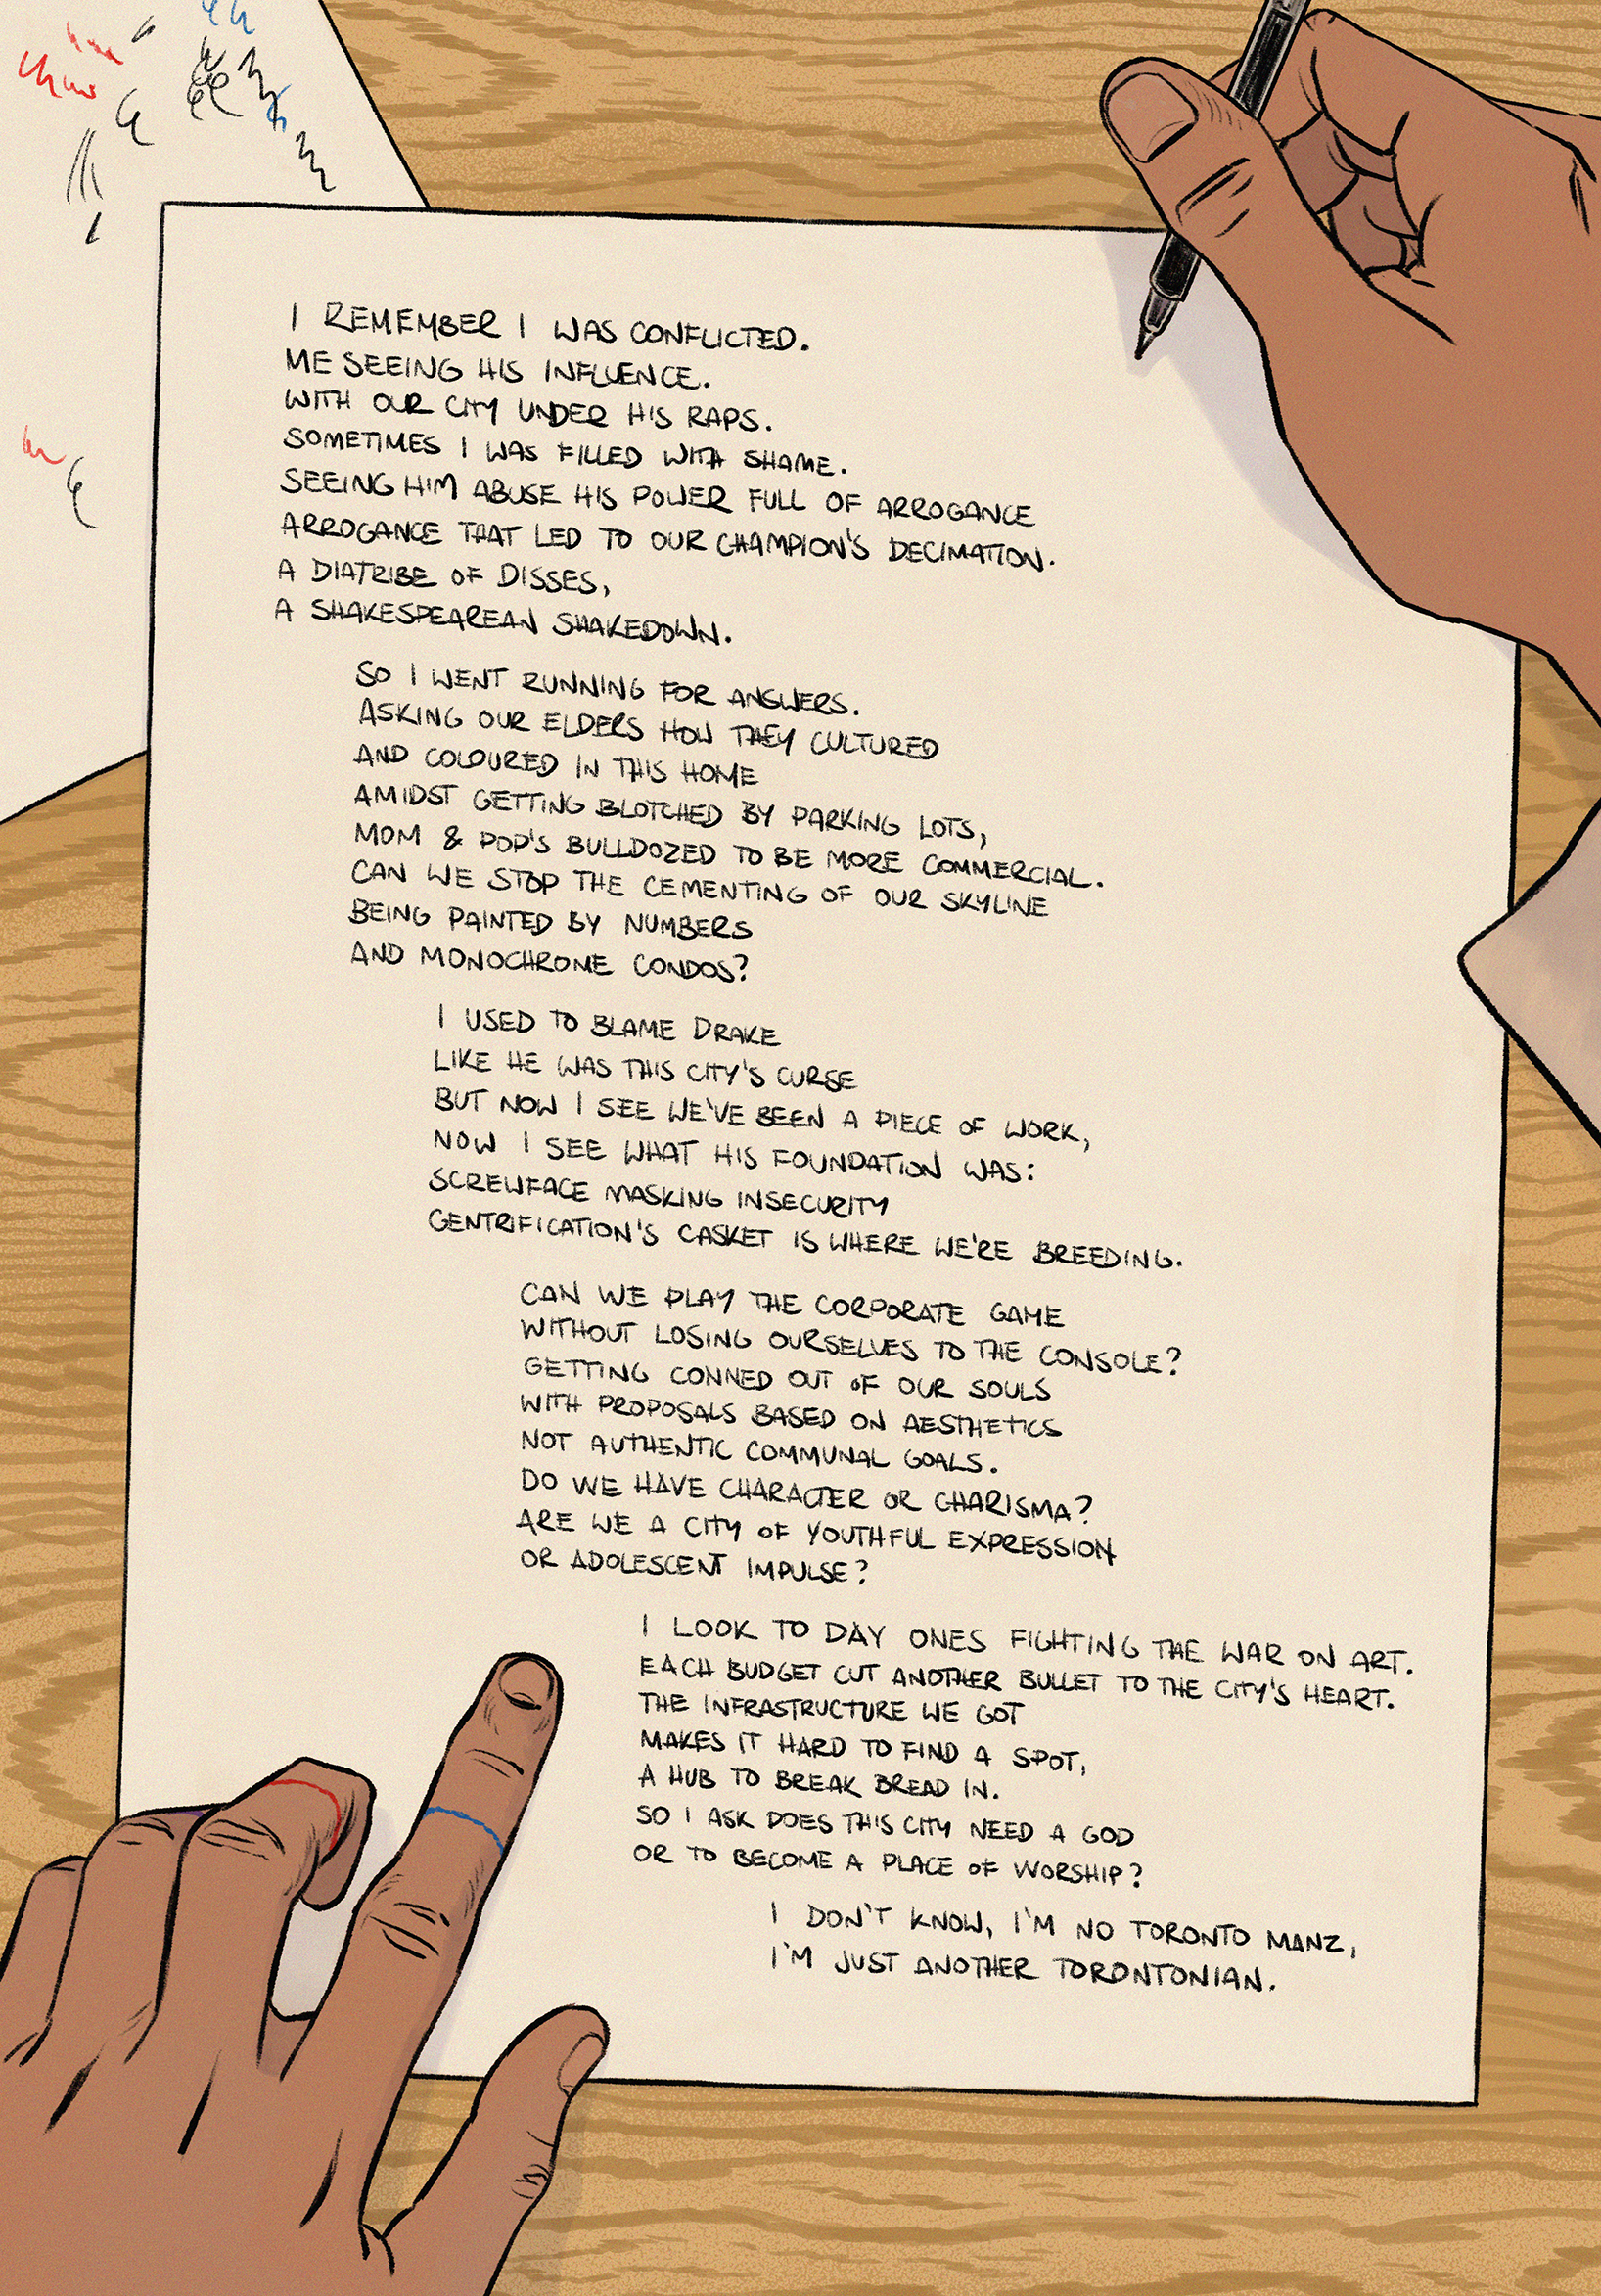 I REMEMBER I WAS CONFLICTED.
ME SEEING HIS INFLUENCE.
WITH OUR CITY UNDER HIS RAPS.
SOMETIMES I WAS FILLED WITH SHAME.
SEEING HIM ABUSE HIS POWER FULL OF ARROGANCE
ARROGANCE THAT LED TO OUR CHAMPION'S DECIMATION.
A DIATRIBE OF DISSES,
A SHAKESPEAREAN SHAKEDOWN.
SO I WENT RUNNING FOR ANSWERS.
ASKING OUR ELDERS HOW THEY CULTURED
AND COLOURED IN THIS HOME
AMIDST GETTING BLOTCHED BY PARKING LOTS,
MOM & POP'S BULLDOZED TO BE MORE COMMERCIAL.
CAN WE STOP THE CEMENTING OF OUR SKYLINE
BEING PAINTED BY NUMBERS
AND MONOCHROME CONDOS?
I USED TO BLAME DRAKE
LIKE HE WAS THIS CITY'S CURSE
BUT NOW I SEE WE'VE BEEN A PIECE OF WORK,
NOW I SEE WHAT HIS FOUNDATION WAS:
SCREWFACE MASKING INSECURITY
GENTRIFICATION'S CASKET IS WHERE WE'RE BREEDING.
CAN WE PLAY THE CORPORATE GAME
WITHOUT LOSING OURSELVES TO THE CONSOLE?
GETTING CONNED OUT OF OUR SOULS
WITH PROPOSALS BASED ON AESTHETICS
NOT AUTHENTIC COMMUNAL GOALS.
DO WE HAVE CHARACTER OR CHARISMA?
ARE WE A CITY OF YOUTHFUL EXPRESSION
OR ADOLESCENT IMPULSE?
I LOOK TO DAY ONES FIGHTING THE WAR ON ART.
EACH BUDGET CUT ANOTHER BULLET TO THE CITY'S HEART.
THE INFRASTRUCTURE WE GOT
MAKES IT HARD TO FIND A SPOT,
A HUB TO BREAK BREAD IN.
SO I ASK DOES THIS CITY NEED A GOD
OR TO BECOME A PLACE OF WORSHIP?
I DON'T KNOW, I'M NO TORONTO MANZ,
I'M JUST ANOTHER TORONTONIAN.